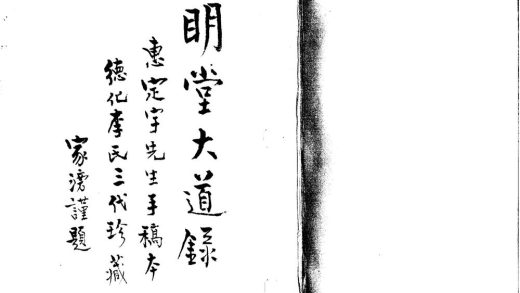 明堂大道錄
惠定宇先生手稿本
德化李氏三代珍藏
家滂謹題